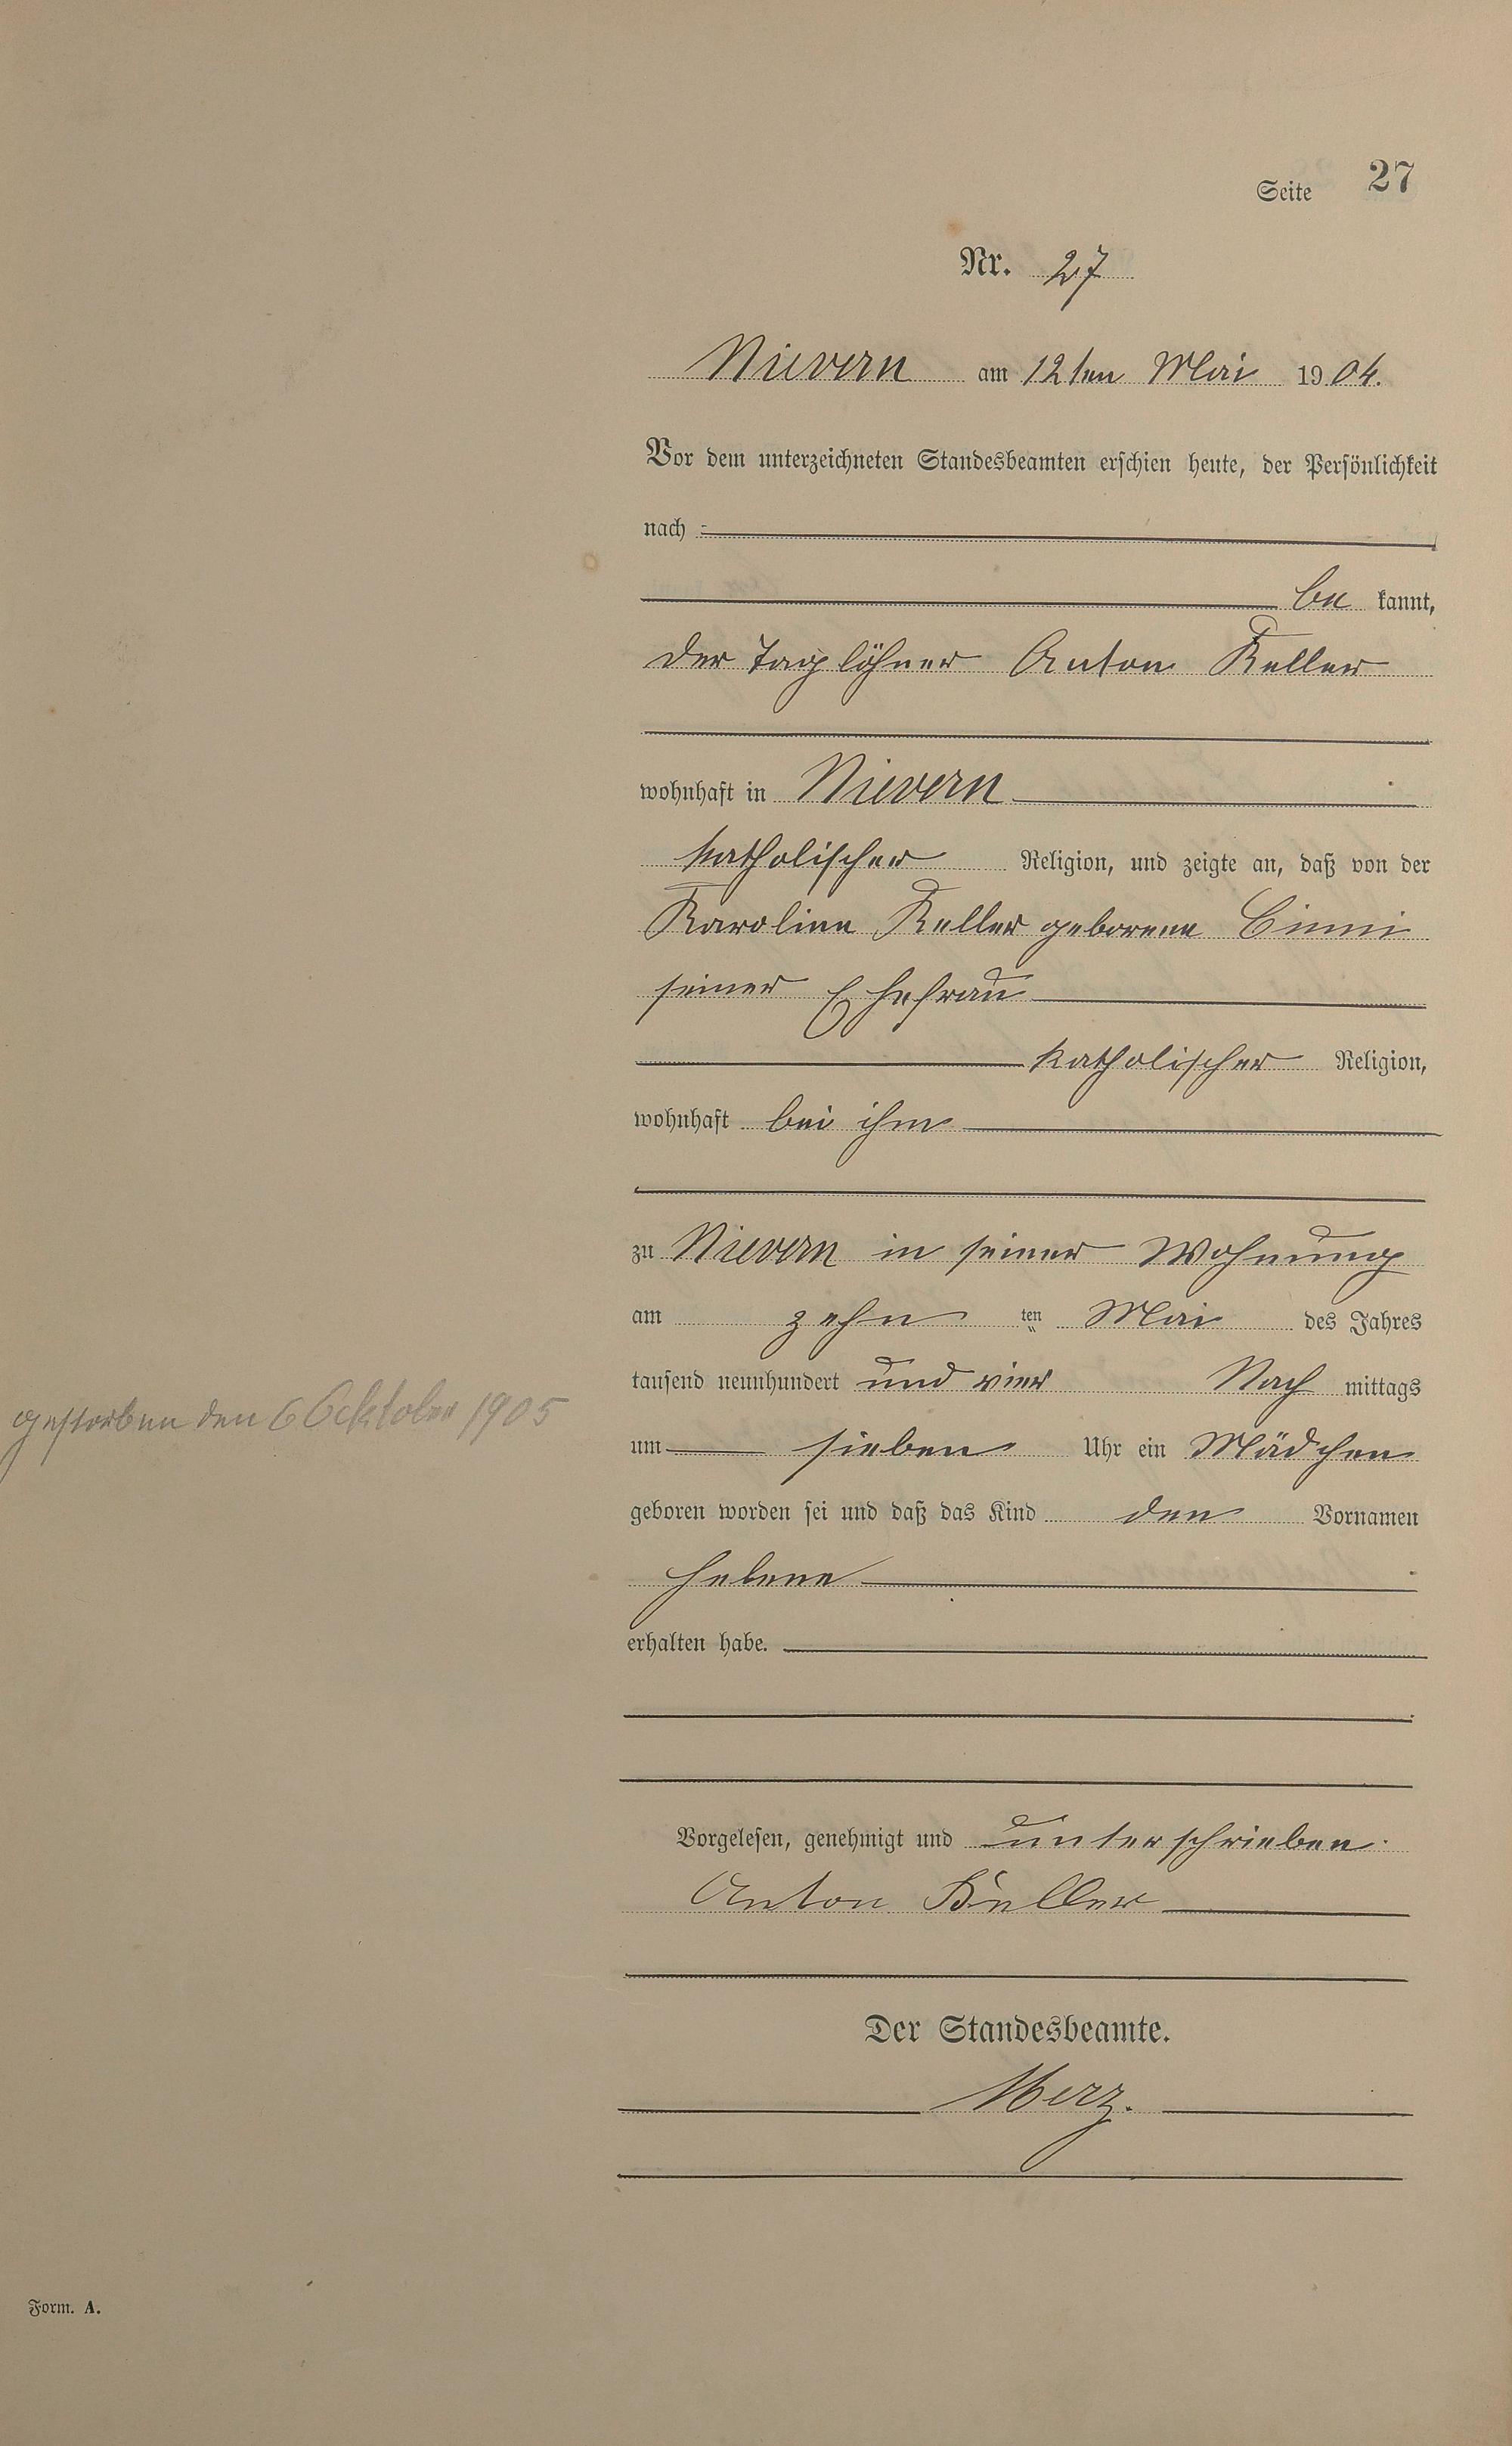 Seite 27
Nr. 27
Nievern am 12ten Mai 1904.
Vor dem unterzeichneten Standesbeamten erschien heute, der Persönlichkeit
nach
be kannt,
der Taglöhner Anton Keller
wohnhaft in Nievern
katholischer Religion, und zeigte an, daß von der
Karoline Keller geborene
seiner Ehefrau
katholischer Religion,
wohnhaft bei ihm
zu Nievern in seiner Wohnung
am zehn ten Mai des Jahres
tausend neunhundert und vier Nach mittags
um sieben Uhr ein Mädchen
gestorben den 6 Oktober 1905
geboren worden sei und daß das Kind den Vornamen
Helene
erhalten habe.
Vorgelesen, genehmigt und unterschrieben.
Anton Keller
Der Standesbeamte.
Merz.
Form. A.